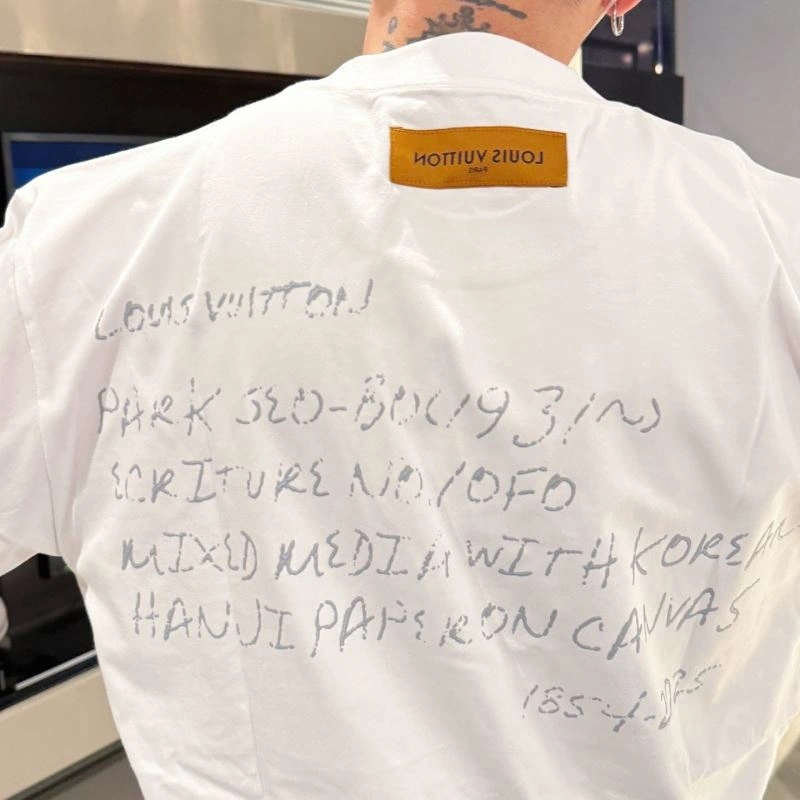 LOUIS VUITTON
PARIS
LOUIS VUITTON
PARK SEO-BO(1931~)
ECRITURE NO/OFO
MIXED MEDIA WITH KOREAN
HANJI PAPER ON CANVAS